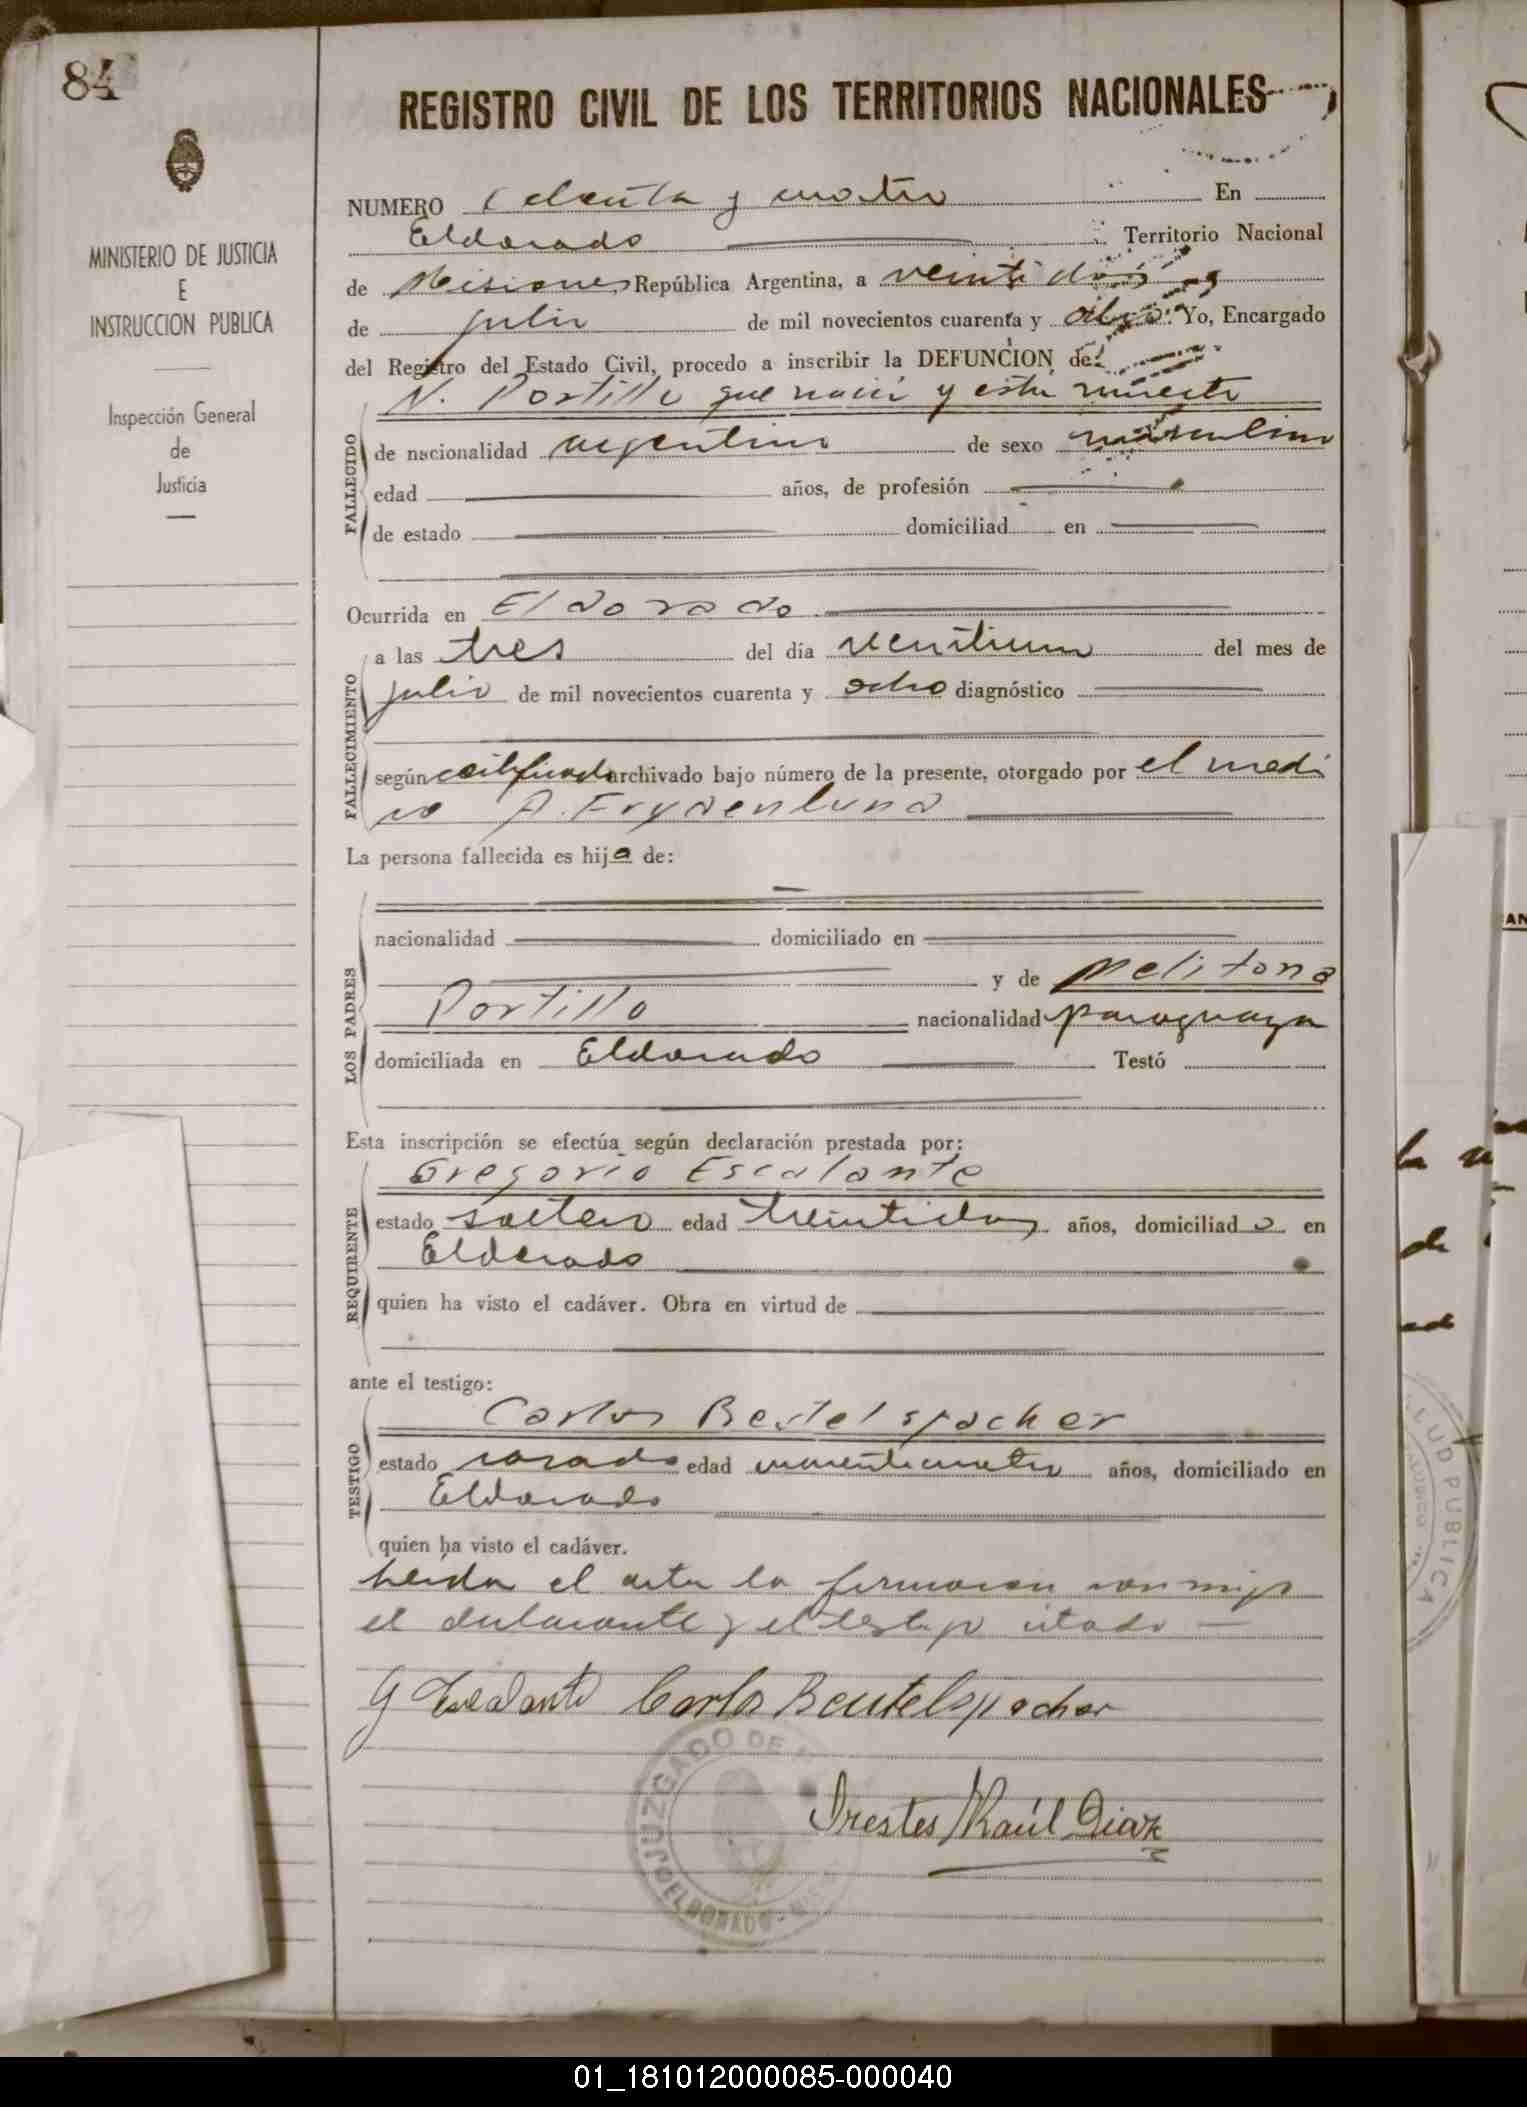 84
REGISTRO CIVIL DE LOS TERRITORIOS NACIONALES
MINISTERIO DE JUSTICIA
E
INSTRUCCION PUBLICA
Inspección General
de
Justicia
NUMERO Ochenta y cuatro En
Eldorado Territorio Nacional
de Misiones República Argentina, a veintidós
de julio de mil novecientos cuarenta y ocho Yo, Encargado
del Registro del Estado Civil, procedo a inscribir la DEFUNCION de:
N. Portillo que nació y esta muerto
FALLECIDO
de nacionalidad argentino de sexo masculino
edad años, de profesión
de estado domiciliad en
Ocurrida en Eldorado
FALLECIMIENTO
a las tres del día veintiuno del mes de
julio de mil novecientos cuarenta y ocho diagnóstico
según certificado archivado bajo número de la presente, otorgado por el medi
co A. Frydenlund
La persona fallecida es hijo de:
LOS PADRES
nacionalidad domiciliado en
y de Melitona
Portillo nacionalidad paraguaya
domiciliada en Eldorado Testó
Esta inscripción se efectúa según declaración prestada por:
Gregorio Escalante
REQUIRENTE
estado soltero edad treintidos años, domiciliado en
Eldorado
quien ha visto el cadáver. Obra en virtud de
ante el testigo:
Carlos Bestelspacher
TESTIGO
estado casado edad cuarenticuatro años, domiciliado en
Eldorado
quien ha visto el cadáver.
Leida el acta la firmaron conmigo
el declarante y el testigo citado
G Escalante Carlos Beutelspacher
Orestes Raúl Diaz
JUZGADO DE
ELDORADO
LUD PUBLICA
la
de
01_181012000085-000040